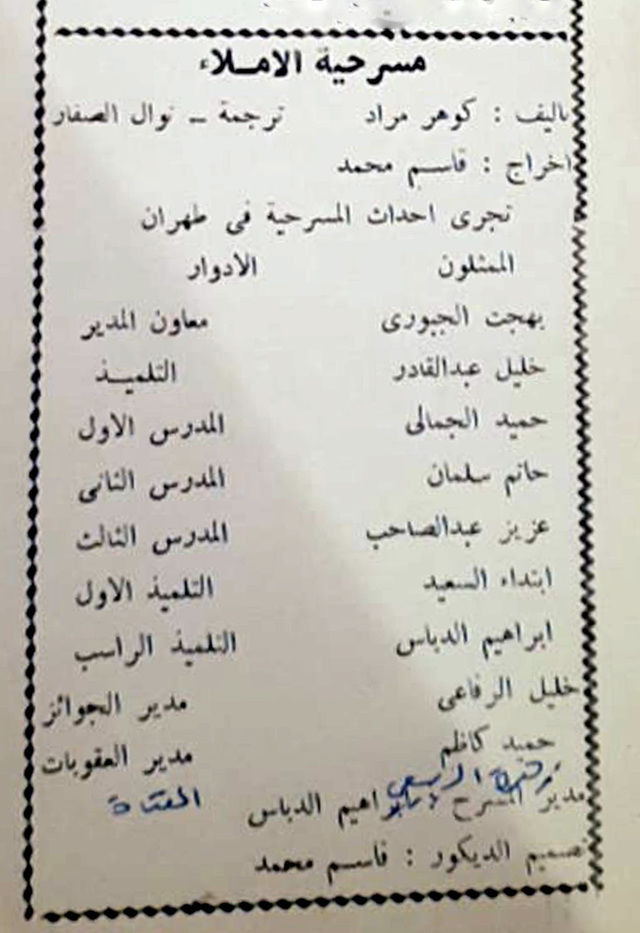 مسرحية الاملاء
تاليف : كوهر مراد ترجمة ــ نوال الصفار
اخراج : قاسم محمد
تجرى احداث المسرحية فى طهران
الممثلون الادوار
بهجت الجبورى معاون المدير
خليل عبدالقادر التلميذ
حميد الجمالى المدرس الاول
حاتم سلمان المدرس الثانى
عزيز عبدالصاحب المدرس الثالث
ابتداء السعيد التلميذ الاول
ابراهيم الدباس التلميذ الراسب
خليل الرفاعى مدير الجوائز
حميد كاظم مدير العقوبات
الفتاة
مدير المسرح : ابراهيم الدباس
تصميم الديكور : قاسم محمد